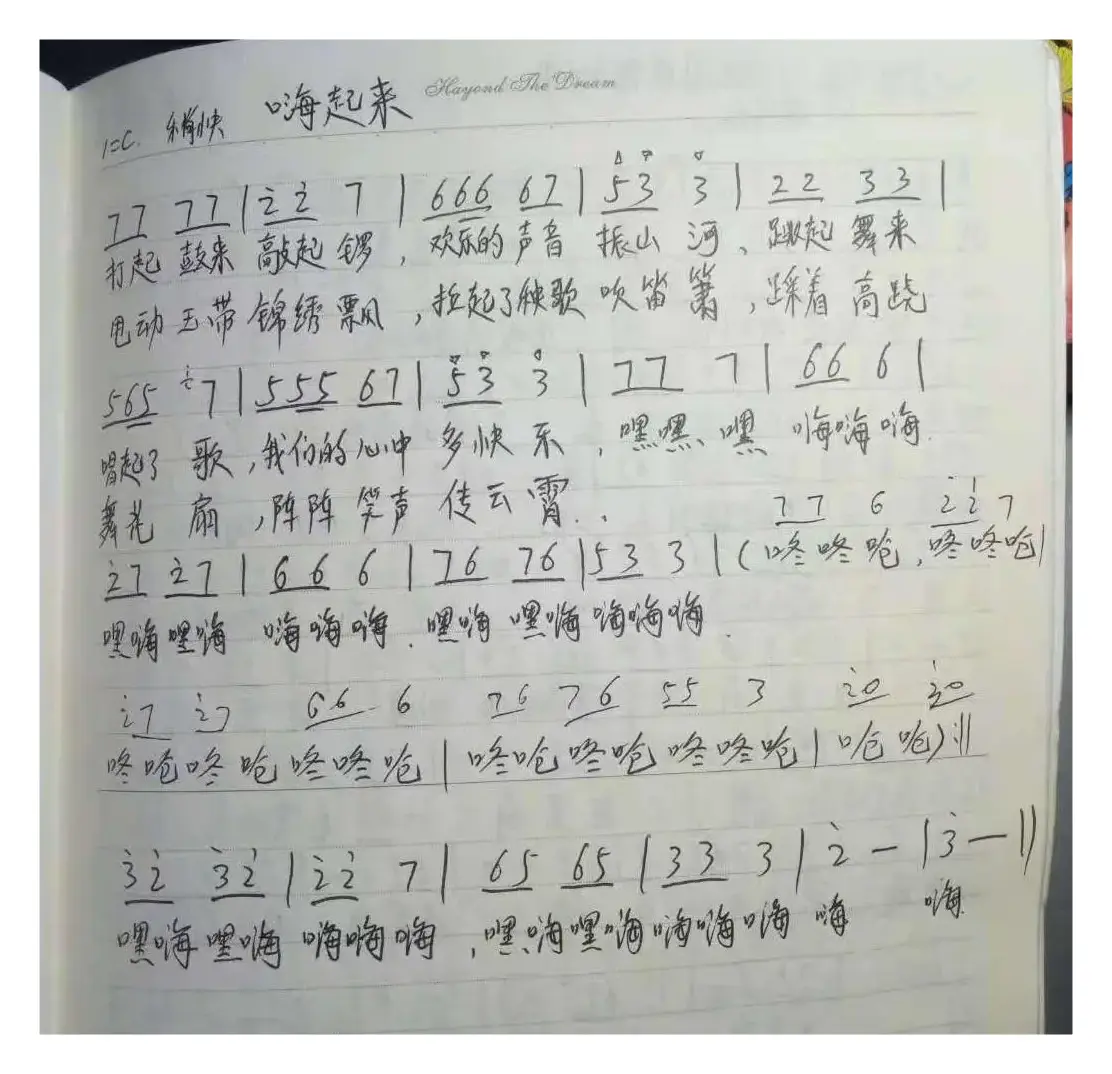 Hayond The Dream
1=C. 稍快 嗨起来
77 77 | i̇ i̇ 7 | 666 67 | 53 3 | 22 33 |
打起 鼓来 敲起 锣，欢乐的 声音 振山 河、跳起 舞来
甩动 玉带 锦绣 飘，扭起了秧歌 吹笛 箫，踩着 高跷
565 7 | 555 67 | 53 3 | 77 7 | 66 6 |
唱起了 歌，我们的 心中 多快 乐，嘿嘿、嘿 嗨嗨嗨.
舞花 扇，阵阵 笑声 传云 霄..
77 6 2̇2̇ 7
2̇7 2̇7 | 66 6 | 76 76 | 53 3 | (咚咚呛，咚咚呛|
嘿嗨嘿嗨 嗨嗨嗨．嘿嗨 嘿嗨 嗨嗨嗨．
2̇7 2̇7 66 6 76 76 55 3 2̇0 3̇0
咚呛咚呛咚咚呛 | 咚呛咚呛咚咚呛 | 呛呛):||
3̇2̇ 3̇2̇ | 2̇2̇ 7 | 65 65 | 33 3 | 2̇ – | 3̇ – ||
嘿嗨嘿嗨 嗨嗨嗨，嘿嗨嘿嗨嗨嗨嗨 嗨 嗨.